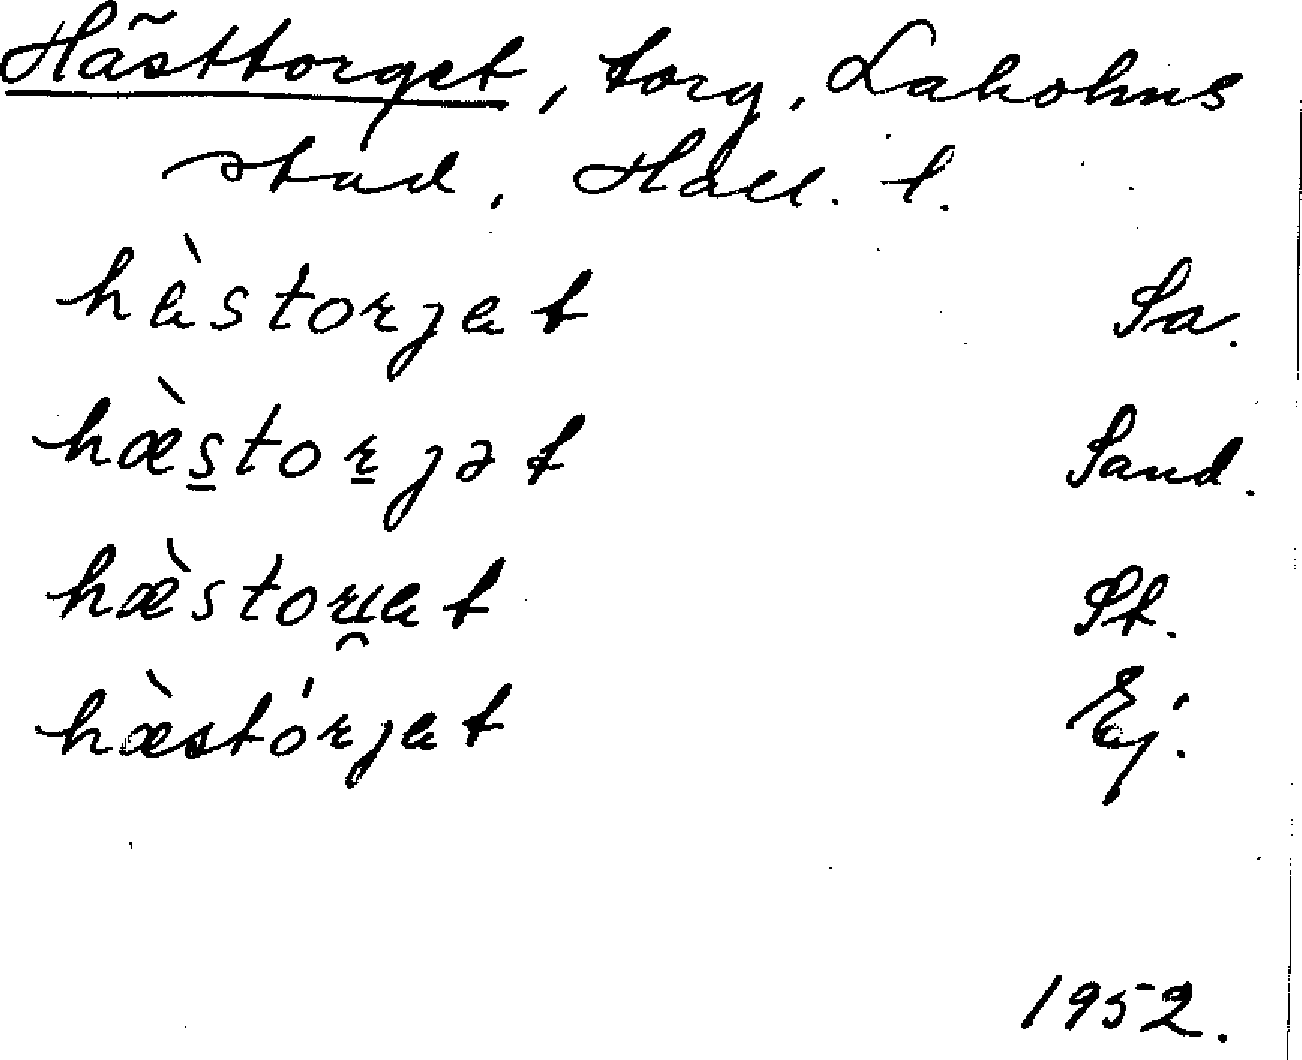 Hästtorget, torg, Laholms
stad, Hall. l.
hæ̀storjat Sa.
hæ̀s̲tor̲jət Sand.
hæ̀stori̯at St.
hæ̀stórjat Ej.
1952.